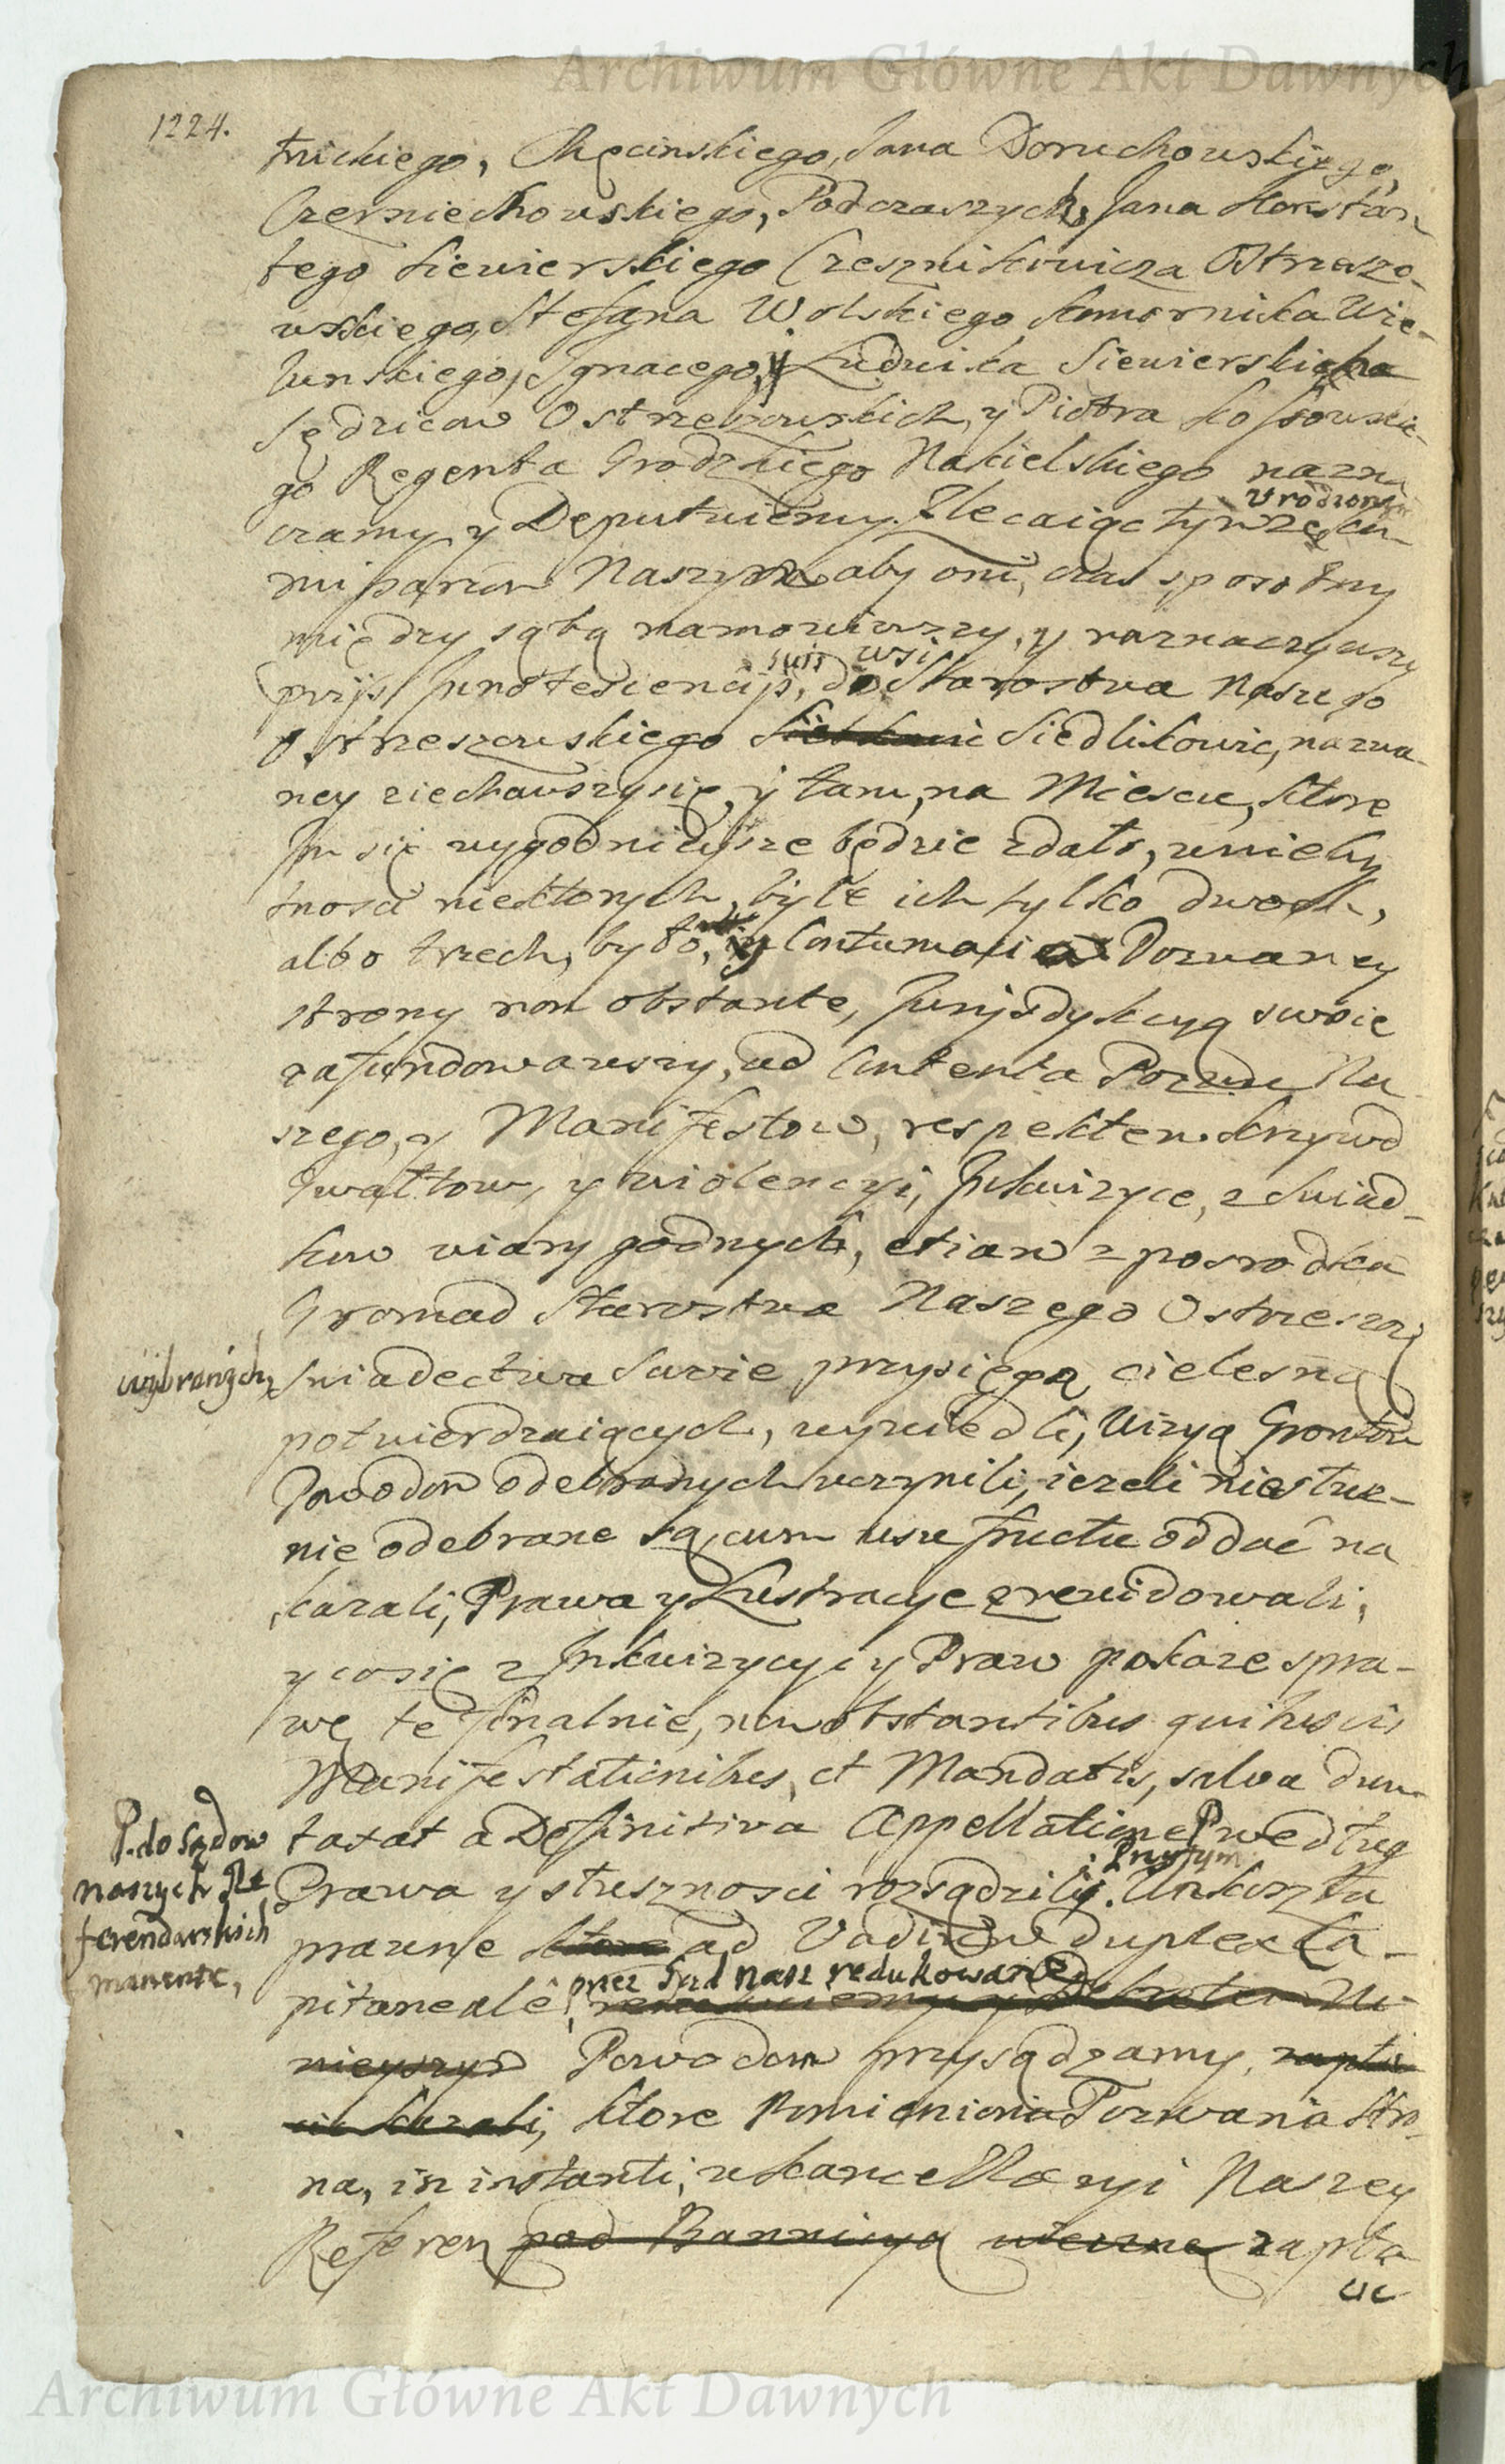 Archiwum Główne Akt Dawnych
1224.
trickiego, Chęcinskiego, Jana Doruchowskiego,
Czerniechowskiego, Podczaszych, Jana Konstan
tego Siewierskiego Czesznikowicza Ostrzeszo-
wskiego, Stefana Wolskiego Komornika Wie-
lunskiego, Ignacego, y Ludwika Siewierskich
Sędzicow Ostrzeszowskich, y Piotra Kossowskie-
go Regenta Grodzkiego Nakielskiego nazna
czamy y Deputuiemy. Zlecaiąc tymze
Urodzonym
missarzom Naszym aby oni, czas sposobny
między sąbą namowiwszy, y naznaczywszy
suis wsi
przyś Innotescencijs, do Starostwa Naszego
Ostrzeszowskiego Siedlikowic, nazwa-
ney ziechawszysię, y tam, na Miescu, ktore
Im się wygodnieysze będzie zdało, w nieby
tnosci niektorych, byle ich tylko dwoch,
albo trzech, było, Contumacia Pozwaney
strony non obstante, Jurysdykcyą swoie
zafundowawszy, ad Contenta Pozwu Na
szego, y Manifestow, respektem krzywd
Gwałtow, y wiolencyi, Inkwizycye, z Swiad-
kow wiary godnych, etiam z posrodka
Gromad Starostwa Naszego Ostrzeszow
wybranych, Swiadectwa Swoie przysięgą cielesną
potwierdzaiących, wywiedli, Wizyą Grontow
Powodom odebranych uczynili, iezeli niesłusz-
nie odebrane są, cum usu fructu oddać na
kazali, Prawa y Lustracye zrewidowali,
y cosię z Inkwizycyi y Praw pokaze spra-
wę tę finalnie, non obstantibus quibusvis
Manifestationibus, et Mandatis, salva dun-
taxat a Definitiva Appellatione P według
P. do Sądow
naszych Re
ferendarskich
manente,
Przytym
Prawa y słusznosci rozsądzili. Unkoszta
prawne ktore ad Vadium duplex Ca-
przez Sąd nasz redukowane
pitaneale,
nieyszym Powodom przysądzamy, zapła
cic kazali, ktore Pomieniona Pozwana Stro-
na, in instanti, w Kancellaryi Naszey
Referen pod Bannicyą wieczną zapła
cic
Archiwum Główne Akt Dawnych